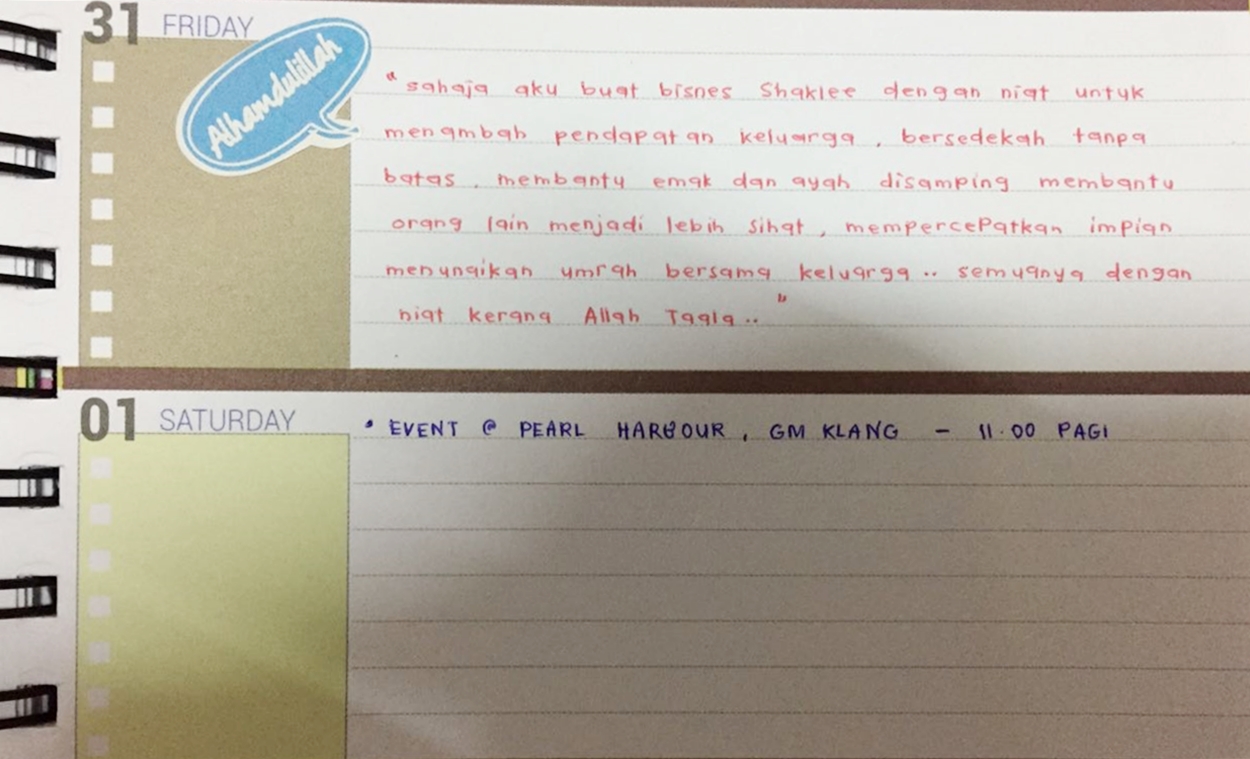 31 FRIDAY
Alhamdulillah
"sahaja aku buat bisnes Shaklee dengan niat untuk
menambah pendapatan keluarga, bersedekah tanpa
batas, membantu emak dan ayah disamping membantu
orang lain menjadi lebih sihat, mempercepatkan impian
menunaikan umrah bersama keluarga.. semuanya dengan
niat kerana Allah Taala.."
01 SATURDAY
• EVENT @ PEARL HARBOUR, GM KLANG - 11.00 PAGI